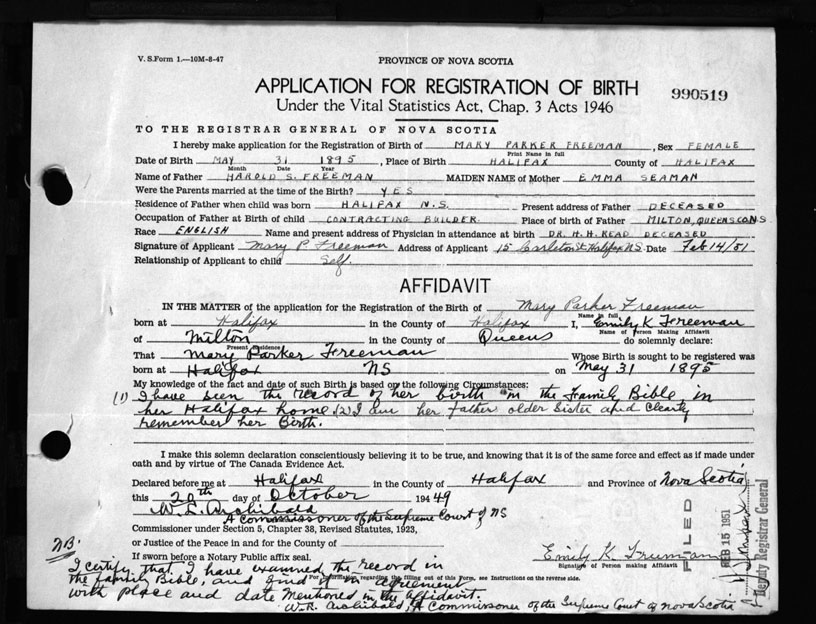 V. S. Form 1.—10M-8-47
PROVINCE OF NOVA SCOTIA
APPLICATION FOR REGISTRATION OF BIRTH
990519
Under the Vital Statistics Act, Chap. 3 Acts 1946
TO THE REGISTRAR GENERAL OF NOVA SCOTIA
I hereby make application for the Registration of Birth of MARY PARKER FREEMAN, Sex FEMALE
Print Name in full
Date of Birth MAY 31 1895, Place of Birth HALIFAX County of HALIFAX
Month Date Year
Name of Father HAROLD S. FREEMAN MAIDEN NAME of Mother EMMA SEAMAN
Were the Parents married at the time of the Birth? YES
Residence of Father when child was born HALIFAX N.S. Present address of Father DECEASED
Occupation of Father at Birth of child CONTRACTING BUILDER. Place of birth of Father MILTON, QUEENS CO NS
Race ENGLISH Name and present address of Physician in attendance at birth DR. H. H. READ DECEASED
Signature of Applicant Mary P. Freeman Address of Applicant 15 Carleton St. Halifax N.S. Date Feb 14/51
Relationship of Applicant to child Self.
AFFIDAVIT
IN THE MATTER of the application for the Registration of the Birth of Mary Parker Freeman
Name in full
born at Halifax in the County of Halifax I, Emily K Freeman
Name of Person Making Affidavit
of Milton in the County of Queens do solemnly declare:
Present Residence
That Mary Parker Freeman Whose Birth is sought to be registered was
born at Halifax NS on May 31 1895
My knowledge of the fact and date of such Birth is based on the following Circumstances:
(1) I have seen the record of her birth in the Family Bible, in
her Halifax home (2) I am her father older Sister and Clearly
remember her Birth.
I make this solemn declaration conscientiously believing it to be true, and knowing that it is of the same force and effect as if made under
oath and by virtue of The Canada Evidence Act.
Declared before me at Halifax in the County of Halifax and Province of Nova Scotia
this 20th day of October 194 49
W. R. Archibald
A Commissoner of the Supreme Court of NS
Commissioner under Section 5, Chapter 38, Revised Statutes, 1923,
or Justice of the Peace in and for the County of
If sworn before a Notary Public affix seal.
Emily K. Freeman
Signature of Person making Affidavit
FILED
FEB 15 1951
Deputy Registrar General
NB.
I certify that I have examined the record in
For information regarding the filling out of this Form, see Instructions on the reverse side.
the family Bible, and find it in agreement
with place and date mentioned in the affidavit.
W. R. Archibald, A Commissoner of the Supreme Court of Nova Scotia